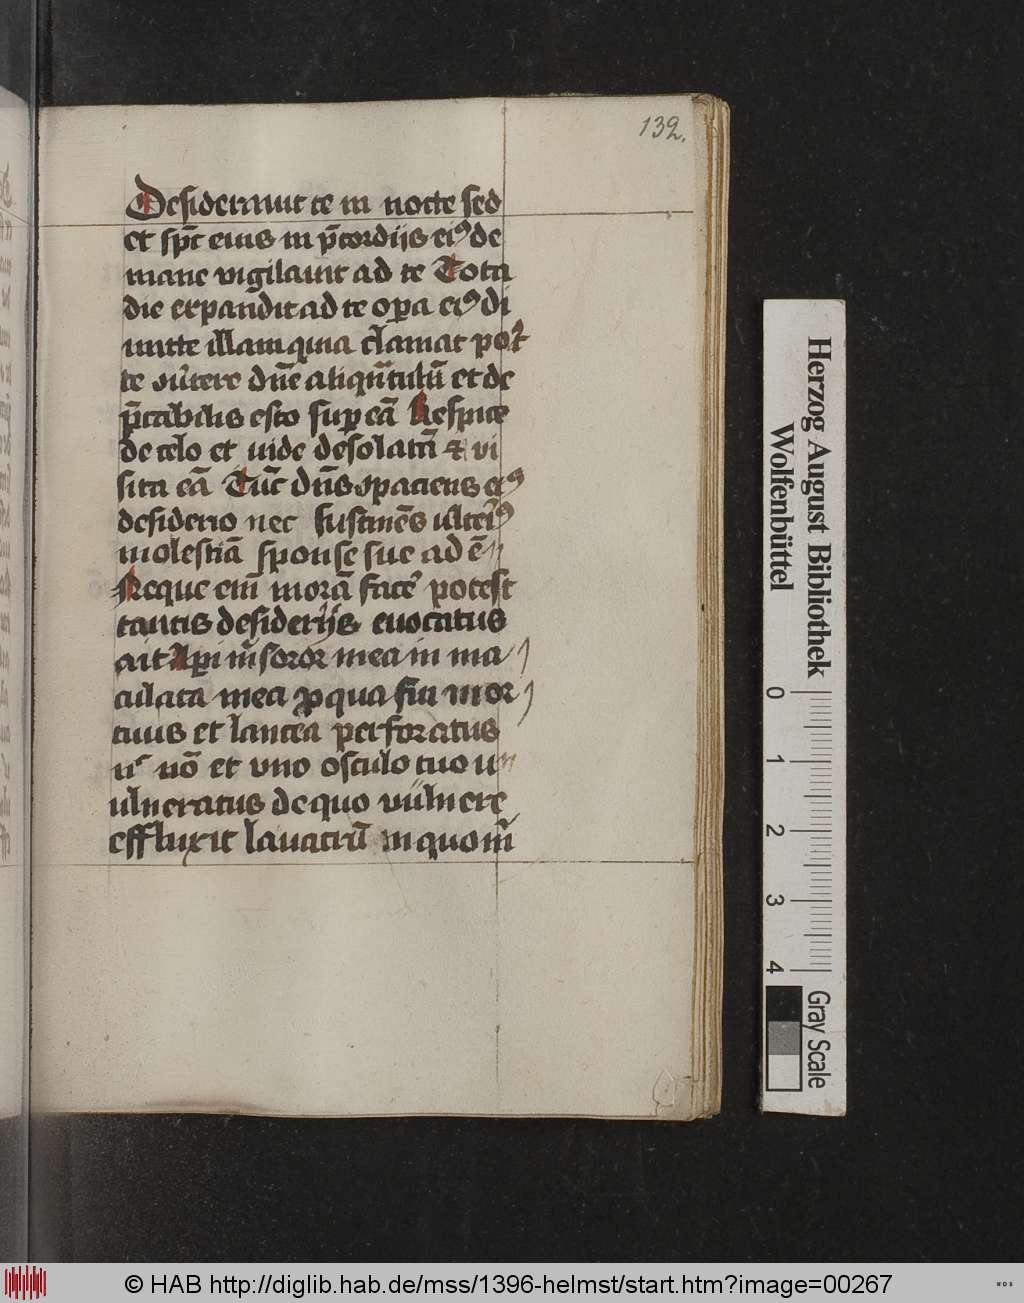 132.
Desiderauit te in nocte sed
et sp̄c eius in p̄cordijs ei⁹ de
mane vigilauit ad te Tota
die expandit ad te opa ei⁹ di
mitte illam quia clamat post
te dn̄e aliqn̄tulū et de
p̄cabilis esto sup eā Respice
de celo et uide desolatā & vi
sita eā Tūc dn̄s
desiderio nec sustinēs
molestiā sponse sue ad ē
Neque eni᷒ morā facē potest
tantis desiderijs euocatus
ait Api m̄ soror mea in ma
culata mea ꝓ qua fui mor
tuus et lancea perforatus
nō et vno osculo tuo u
ulneratus de quo vulnere
effluxit lauacrū in quo m̄
Herzog August Bibliothek
Wolfenbüttel
0 1 2 3 4
Gray Scale
© HAB http://diglib.hab.de/mss/1396-helmst/start.htm?image=00267